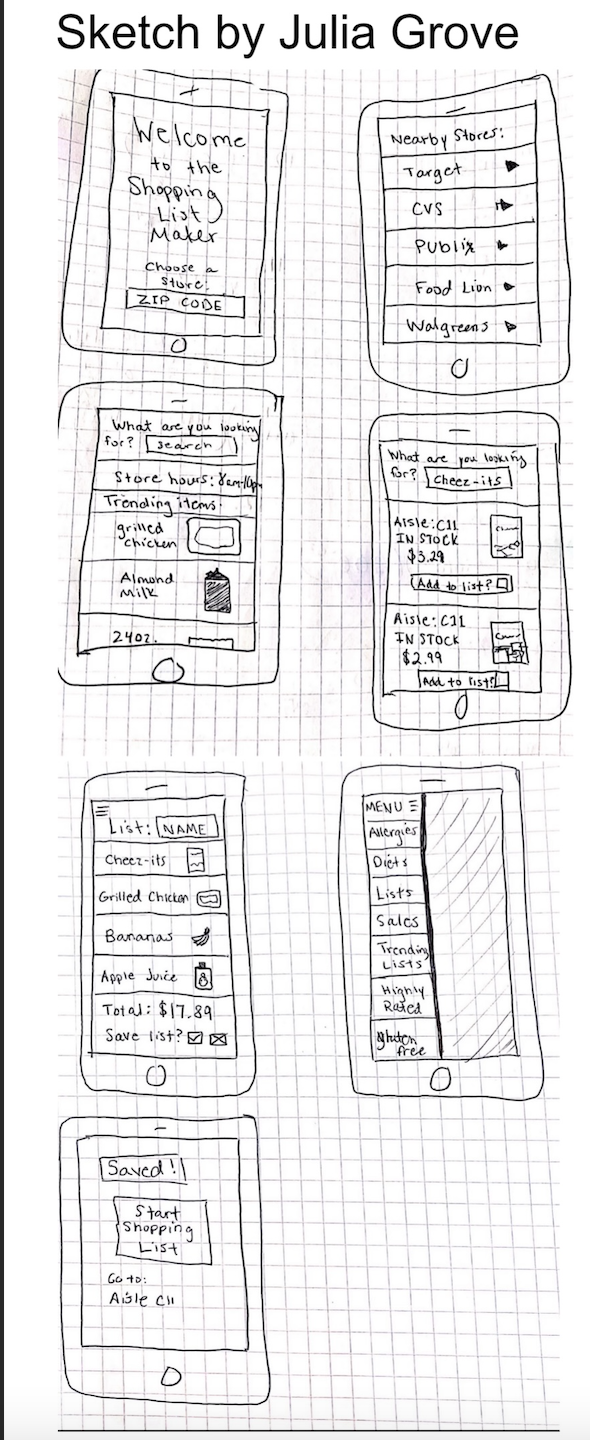 Sketch by Julia Grove
Welcome
to the
Shopping
List
Maker
Choose a
Store:
ZIP CODE
Nearby Stores:
Target
CVS
Publix
Food Lion
Walgreens
What are you looking
for? search
Store hours: 8am-10pm
Trending items:
grilled
chicken
Almond
Milk
24oz.
What are you looking
for? Cheez-its
Aisle: C11
IN STOCK
$3.29
Add to list?
Aisle: C11
IN STOCK
$2.99
Add to list?
List: NAME
Cheez-its
Grilled Chicken
Bananas
Apple Juice
Total: $17.89
Save list?
MENU
Allergies
Diets
Lists
Sales
Trending
Lists
Highly
Rated
gluten
free
Saved!
Start
Shopping
List
Go to:
Aisle C11